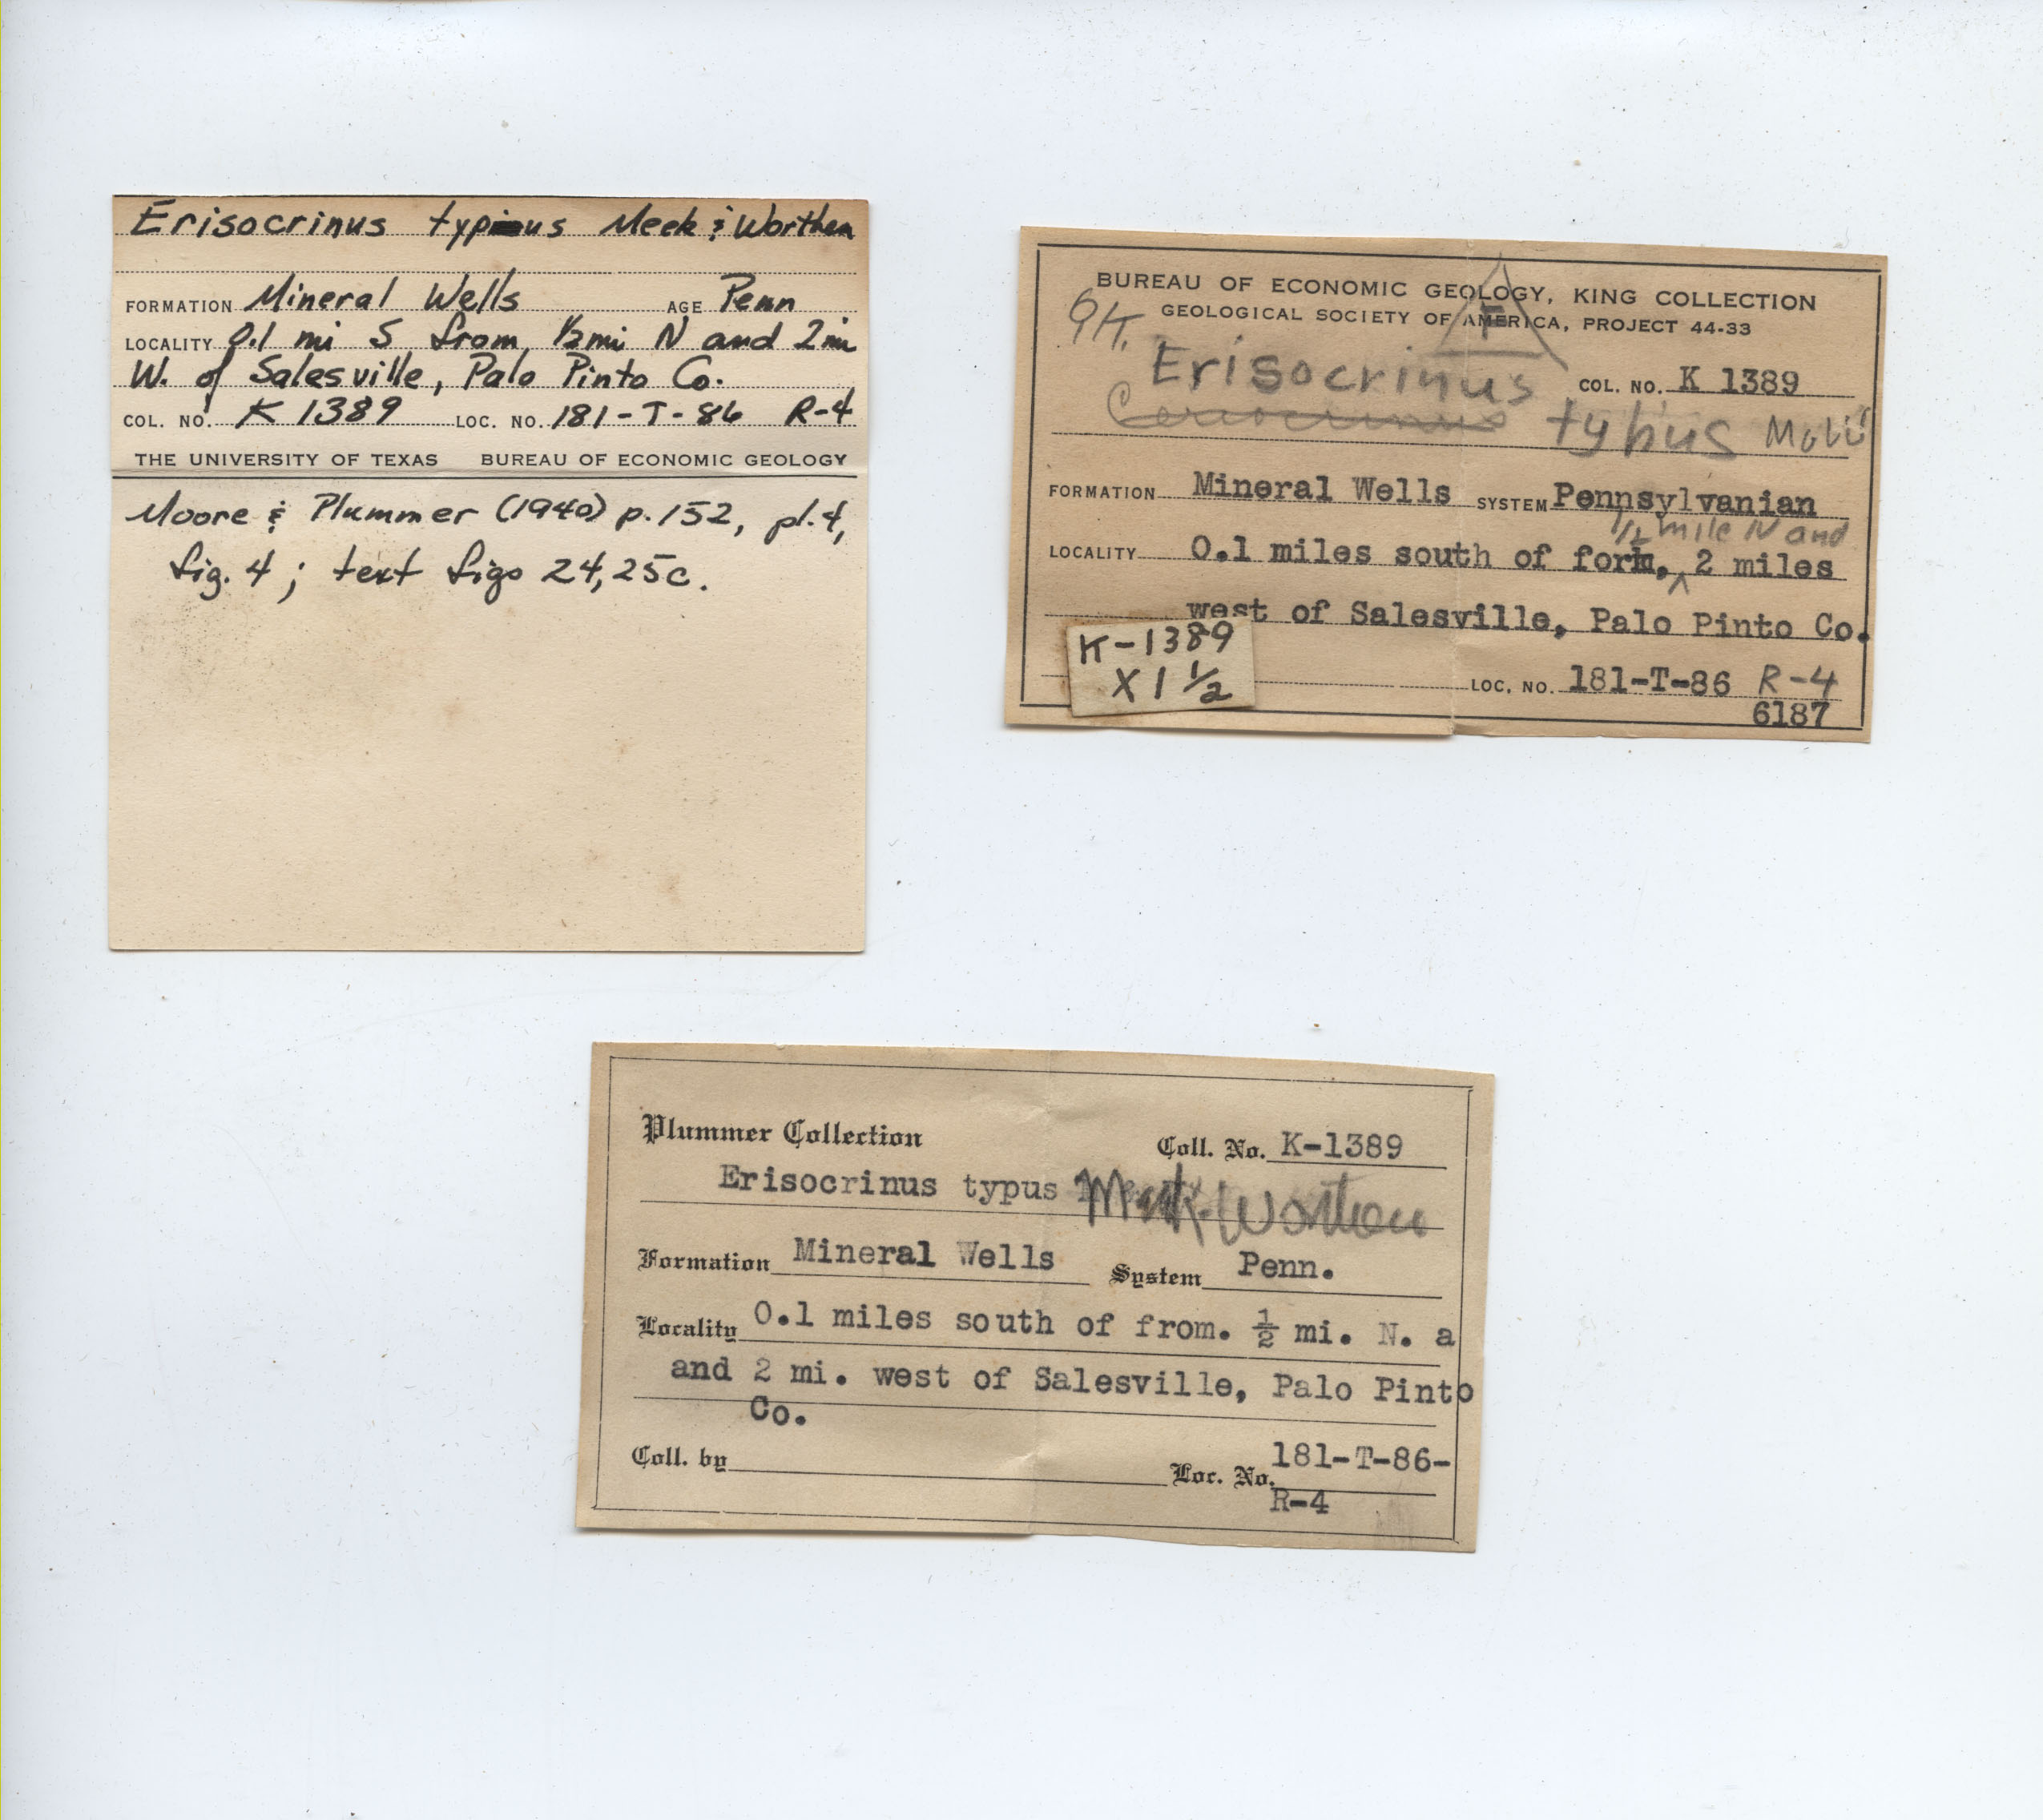 Erisocrinus typus Meek & Worthen
FORMATION Mineral Wells AGE Penn
LOCALITY 0.1 mi S from ½mi N and 2mi
W. of Salesville, Palo Pinto Co.
COL. NO. K 1389 LOC. NO. 181-T-86 R-4
THE UNIVERSITY OF TEXAS BUREAU OF ECONOMIC GEOLOGY
Moore & Plummer (1940) p.152, pl.4,
fig. 4 ; text figs 24,25c.
BUREAU OF ECONOMIC GEOLOGY, KING COLLECTION
GEOLOGICAL SOCIETY OF AMERICA, PROJECT 44-33
Erisocrinus COL. NO. K 1389
typus
FORMATION Mineral Wells SYSTEM Pennsylvanian
1/2 mile N and
LOCALITY 0.1 miles south of fork, 2 miles
west of Salesville, Palo Pinto Co.
K-1389
X 1 1/2
LOC. NO. 181-T-86 R-4
6187
Plummer Collection Coll. No. K-1389
Erisocrinus typus Meek Worthen
Formation Mineral Wells System Penn.
Locality 0.1 miles south of from. ½ mi. N. a
and 2 mi. west of Salesville, Palo Pinto
Co.
Coll. by Loc. No. 181-T-86-
R-4